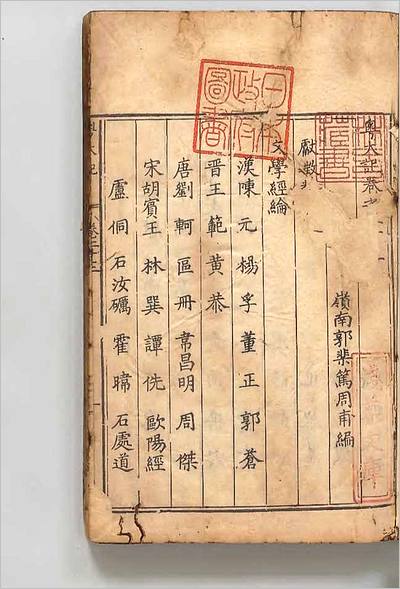 粵大記卷之
嶺南郭棐篤周甫編
獻徵
文學經綸
漢陳元 楊孚 董正 郭蒼
晉王範 黃恭
唐劉軻 區冊 韋昌明 周傑
宋胡賓王 林巽 譚侁 歐陽經
盧侗 石汝礪 霍暐 石處道
粵大記
卷二十三
日本政府圖書